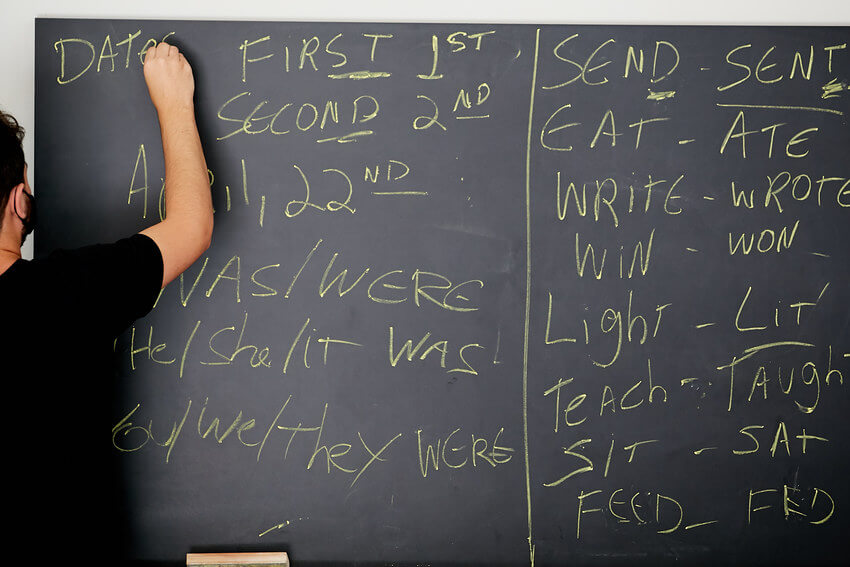 DATES FIRST 1ST
SECOND 2ND
April, 22ND
WAS/WERE
He/She/it WAS
ou/We/They WERE
SEND - SENT
EAT - ATE
WRITE - WROTE
WIN - WON
Light - Lit
Teach - Taught
SIT - SAT
FEED - FED